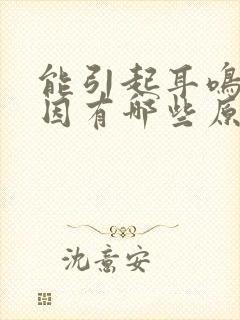 能引起耳鸣
因有哪些原
沈意安